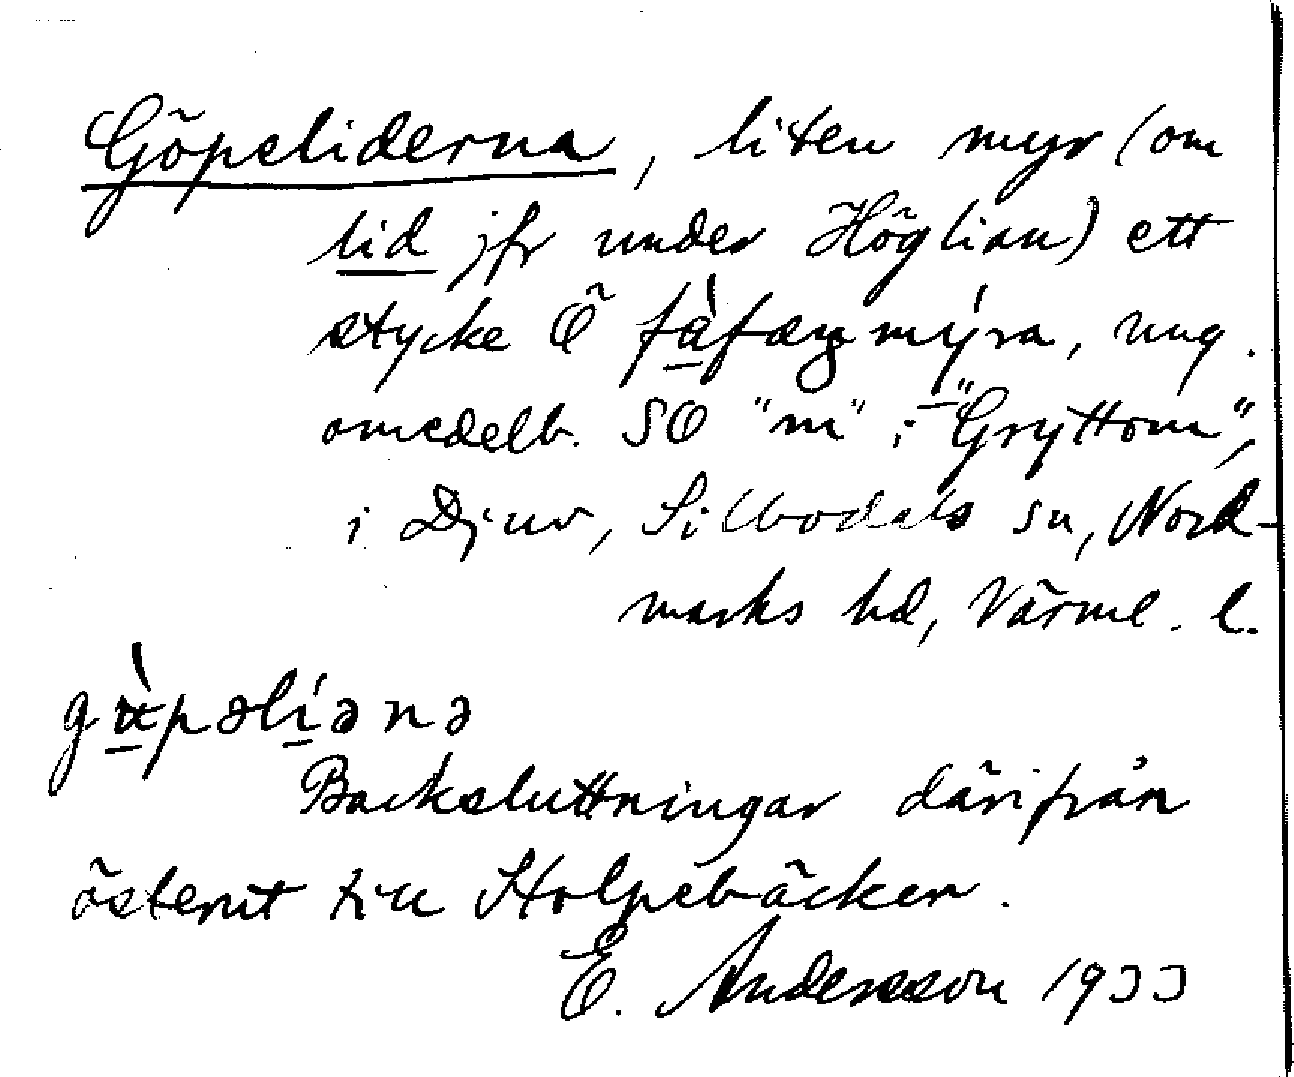 Göpeliderna, liten myr (om
lid jfr under Höglian) ett
stycke Ö fàfæŋmýra, ung.
omedelb. SO "m" i "Gryttom",
i Djuv, Silbodals sn, Nord-
marks hd, Värml. l.
gʉ̀pəlíənə
Backsluttningar därifrån
österut till Stolpebäcken.
E. Andersson 1933